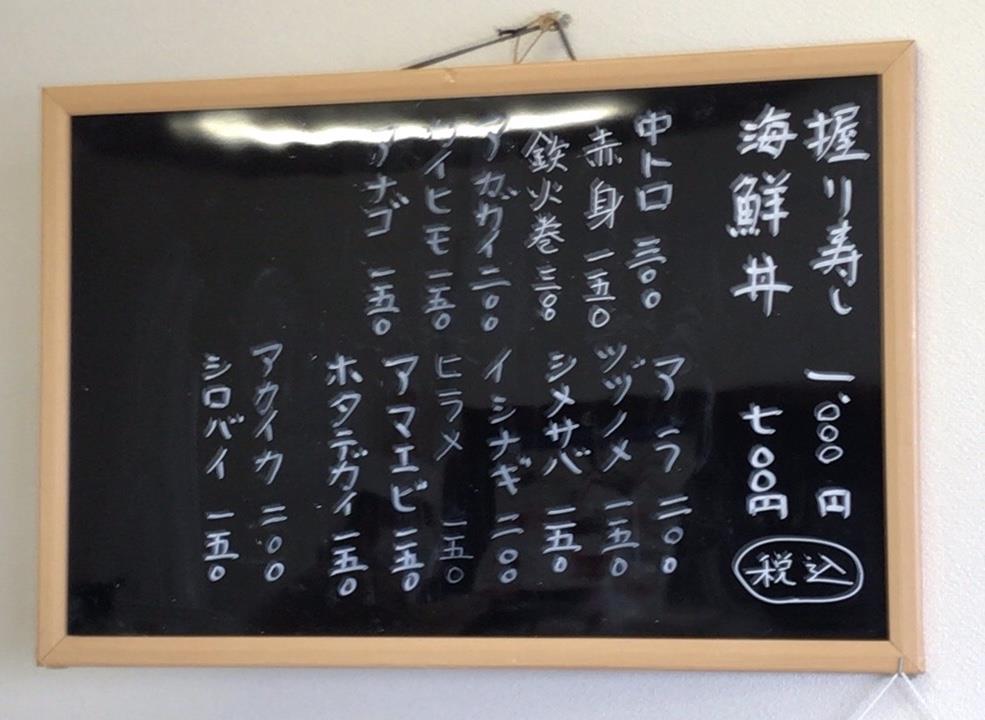 握り寿し 一、〇〇〇円
海鮮丼 七〇〇円
税込
中トロ 三〇〇
赤身 一五〇
鉄火巻 三〇〇
アカガイ 二〇〇
カイヒモ 一五〇
アナゴ 一五〇
アラ 二〇〇
ツヅノメ 一五〇
シメサバ 一五〇
イシナギ 二〇〇
ヒラメ 一五〇
アマエビ 一五〇
ホタテガイ 一五〇
アカイカ 二〇〇
シロバイ 一五〇